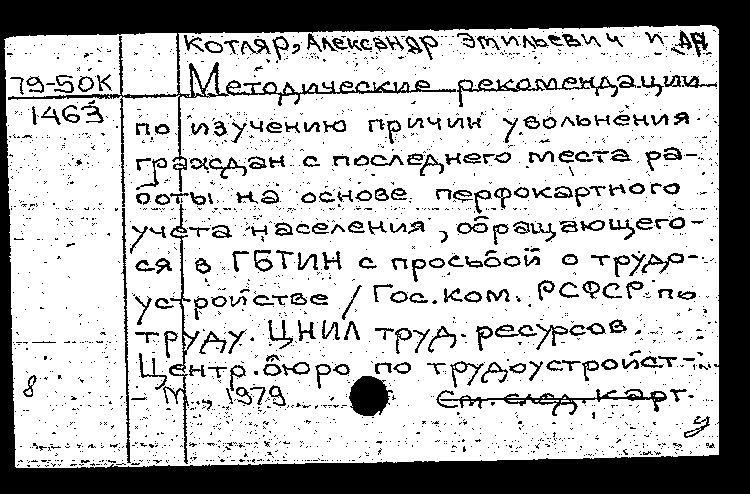 Котляр, Александр Эмильевич и др
79-50К Методические рекомендации
1463 по изучению причин увольнения
граждан с последнего места ра-
боты на основе перфокартного
учета населения, обращающего-
ся в ГБТИН с просьбой о трудо-
устройстве / Гос. ком. РСФСР по
труду. ЦНИЛ труд. ресурсов.
Центр. бюро по трудоустройст-
8 - М., 1979 См. след. карт.